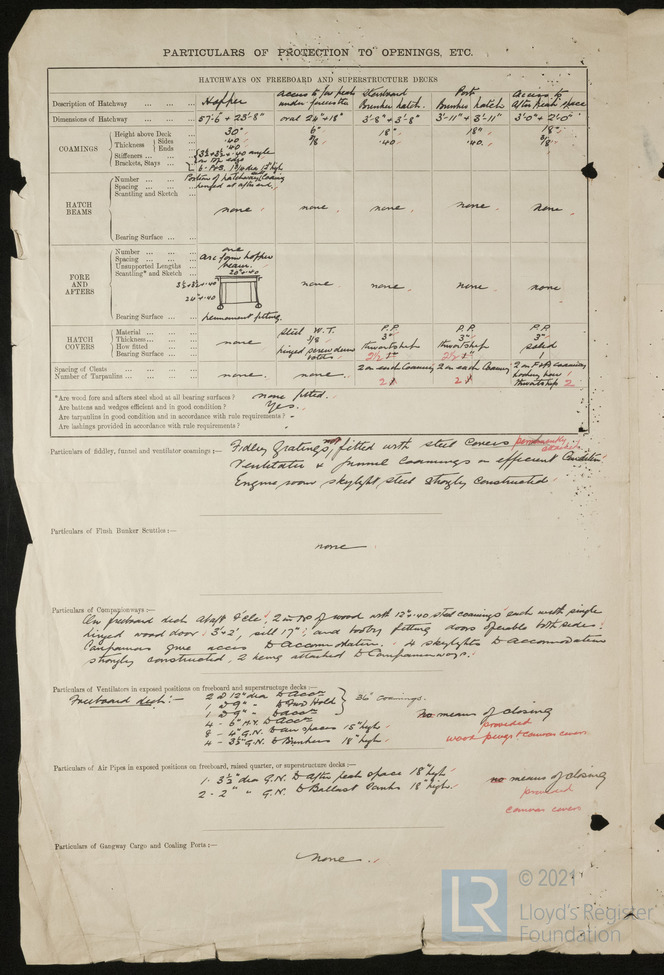 PARTICULARS OF PROTECTION TO OPENINGS, ETC.
HATCHWAYS ON FREEBOARD AND SUPERSTRUCTURE DECKS
Description of Hatchway ... ... ... Hopper access to fore peak under forecastle Starboard Bunker hatch. Port Bunker hatch Access to after peak space
Dimensions of Hatchway ... ... ... 57'-6 + 23'-8" oval 24"+18" 3'-8" + 3'-8" 3'-11" + 3'-11" 3'0" + 2'0"
COAMINGS
Height above Deck ... 30" 6" 18" 18" 18"
Thickness { Sides ... .40 3/8 .40 .40 3/8
Ends ... .40
Stiffeners ... ... 3½+3½+.40 angle on top edge
Brackets, Stays ... ...
HATCH BEAMS
Number ... ... ... Portion of hatchway coaming
Spacing ... ... ... hinged at after end
Scantling and Sketch ...
none none none none none
Bearing Surface ... ...
FORE AND AFTERS
Number ... ... ... one
Spacing ... ... ... arc form hopper
Unsupported Lengths ... beam.
Scantling* and Sketch ... 20"+.40
3½+3½+.40
24"+.40
none none none none
Bearing Surface ... ... permanent fitting
HATCH COVERS
Material ... ... ... steel W.T. P.P. P.P. P.P.
Thickness ... ... ... none 3/8 3" 3" 3"
How fitted ... ... hinged screw down thwartship thwartship solid
Bearing Surface ... ... 2½ 2½
Spacing of Cleats ... ... ... none none 2 on each Coaming 2 on each Coaming 2 on F & A coaming
Number of Tarpaulins ... ... ... 2 2 thwartship 2
*Are wood fore and afters steel shod at all bearing surfaces? none fitted.
Are battens and wedges efficient and in good condition? Yes.
Are tarpaulins in good condition and in accordance with rule requirements? -
Are lashings provided in accordance with rule requirements? -
Particulars of fiddley, funnel and ventilator coamings:— Fidley Gratings, fitted with steel covers permanently attached.
Ventilator & funnel coamings in efficient Condition.
Engine room skylight, steel strongly constructed
Particulars of Flush Bunker Scuttles:—
none
Particulars of Companionways:—
On freeboard deck abaft 2 in No of wood with 12"+.40 steel coamings each with single
hinged wood door 3'+2', sill 17"; and booby fitting doors operable both sides:
Companions give access to accommodation. 4 skylights to accommodation
strongly constructed, 2 being attached to Companionways.
Particulars of Ventilators in exposed positions on freeboard and superstructure decks:—
Freeboard deck:— 2 @ 12" dia to accn
1 @ 9" " to Fwd Hold
1 @ 9" " to accn
36" coamings.
4 - 6" to accn
8 - 4" G.N. to air spaces 15" high.
4 - 3½" G.N. to Bunkers 18" high.
No means of closing
provided
wood plugs & canvas covers
Particulars of Air Pipes in exposed positions on freeboard, raised quarter, or superstructure decks:—
1 - 3½" dia G.N. to after peak space 18" high
2 - 2" " G.N. to Ballast Tanks 18" high.
no means of closing
provided
canvas covers
Particulars of Gangway Cargo and Coaling Ports:—
None.
LR © 2021
Lloyd's Register
Foundation